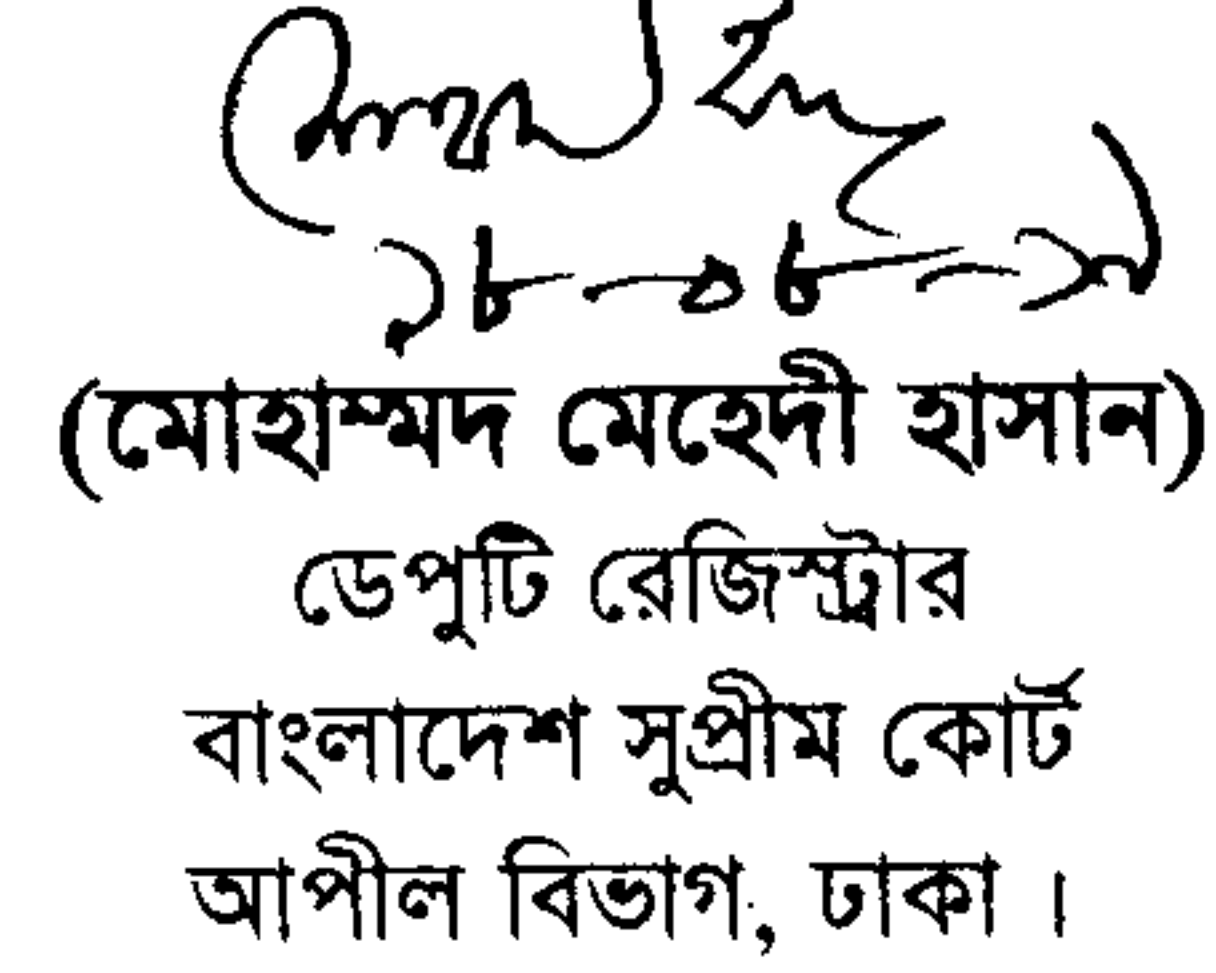 (মোহাম্মদ মেহেদী হাসান)
ডেপুটি রেজিস্ট্রার
বাংলাদেশ সুপ্রীম কোর্ট
আপীল বিভাগ, ঢাকা ।